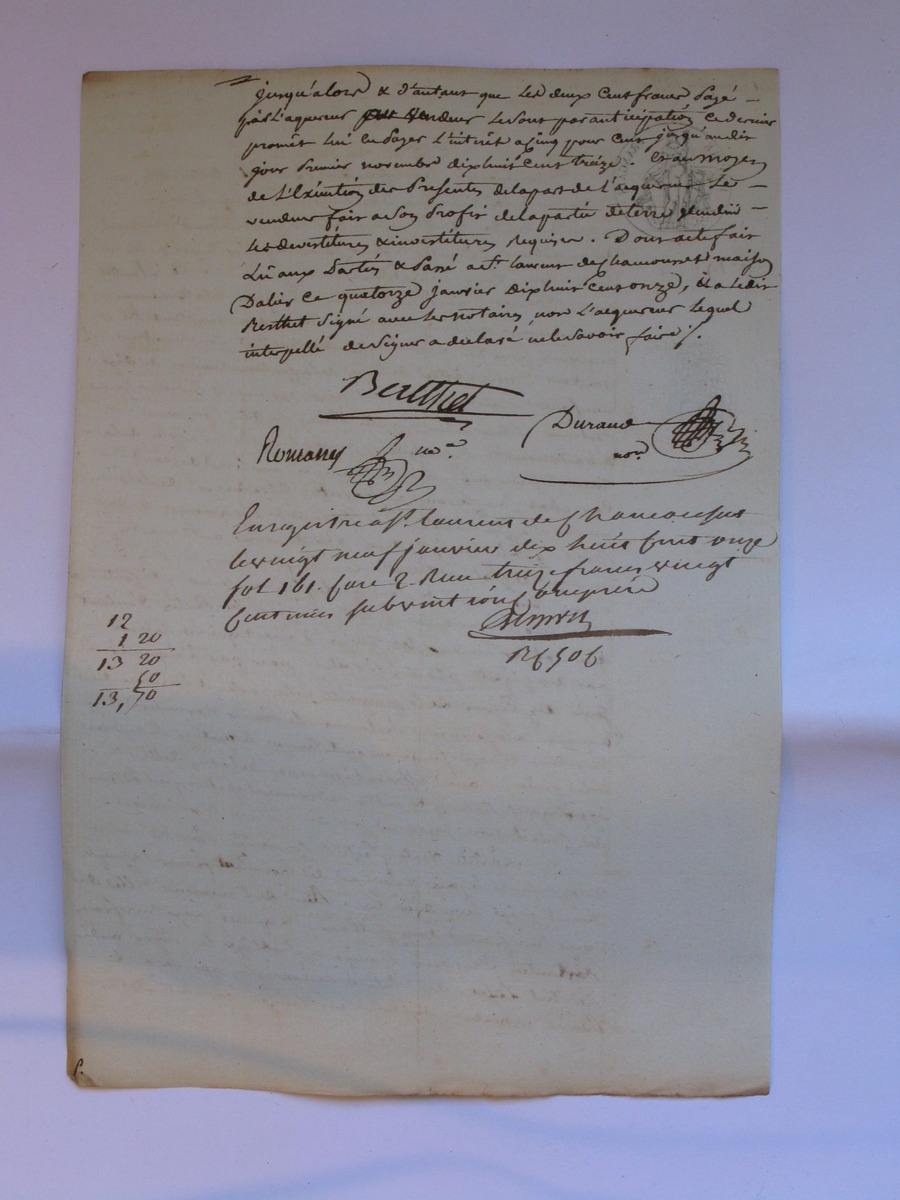 jusqu'alors & d'autant que les deux cent francs payé
par l'aquereur vendeur le sont par anticipation ce dernier
promêt lui en payer l'intérêt a cinq pour cent jusqu'audit
jour premier novembre dix huit cent treize. Et au moyen
de l'exéution des présentes de la part de l'aquereur le
vendeur fait a son profit de la partie de terre vendue
les devestitures & investitures requises. Dont acte fait
Lû aux parties & passé a St. laurent de Chamousset maison
Dalier ce quatorze janvier dix huit cent onze, & a ledit
Berthet signé avec les notaires, non l'aquereur lequel
interpellé de signer a déclaré ne le savoir faire /.
Berthet
Durand
nore.
Romany nre.
Enregistré a St. laurent de Chamousset
le vingt neuf janvier dix huit cent onze
fol 161. case 2. Reçu treize francs vingt
centimes subvention comprise
R 6506
12
1 20
13 20
50
13, 70